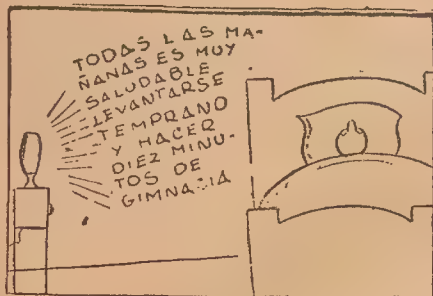 TODAS LAS MA-
ÑANAS ES MUY
SALUDABLE
LEVANTARSE
TEMPRANO
Y HACER
DIEZ MINU-
TOS DE
GIMNASIA